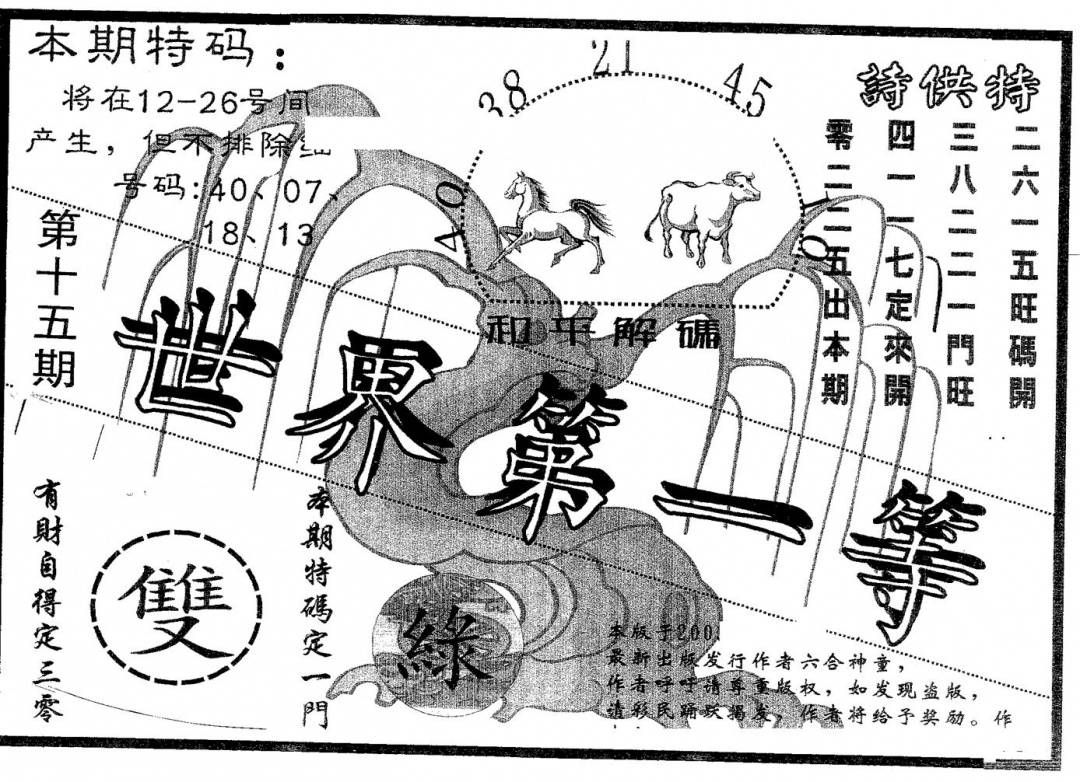 本期特码：
将在12-26号间
产生，但不排除
号码:40、07、
18、13
第十五期
38
21
45
40
10
和平解碼
詩供特
二六一五旺碼開
三八二二一門旺
四一一七定來開
零二二五出本期
世界第一等
有財自得定三零
雙
本期特碼定一門
綠
本版于200
最新出版发行作者六合神童，
作者呼吁请尊重版权，如发现盗版，
请彩民踊跃揭发，作者将给予奖励。作